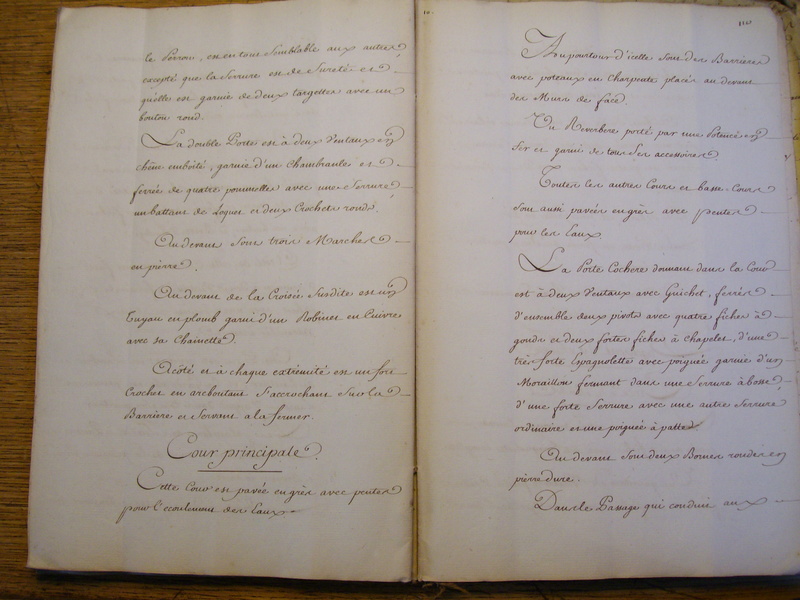 le Perron, est en tout semblable aux autres
excepté que la Serrure est de Sureté et
qu'elle est garnie de deux targettes avec un
bouton rond.
La double Porte est à deux Ventaux en
chêne emboité, garnie d'un Chambranle et
ferrée de quatre poumelles avec une Serrure
un battant de Loquet et deux Crochets ronds.
Au devant sont trois Marches
en pierre.
Au devant de la Croisée Susdite est un
Tuyau en plomb garni d'un Robinet en Cuivre
avec sa Chainette.
A côté et à chaque extrémité est un fort
Crochet en arcboutant s'accrochant sur la
Barrière et Servant a la fermer.
Cour principale.
Cette Cour est pavée en grès avec pentes
pour l'ecoulement des Eaux
Au pourtour d'icelle sont des Barrières
avec poteaux en Charpente placés au devant
des Murs de face.
Un Reverbère porté par une Potence en
fer et garni de tous ses accessoires.
Toutes les autres Cours et basse-Cours
sont aussi pavées en grès avec pentes
pour les Eaux
La Porte Cochère donnant dans la Cour
est à deux Ventaux avec Guichet, ferrés
d'ensemble deux pivots avec quatre fiches à
gonds et deux fortes fiches à chapelet, d'une
très forte Espagnolette avec poignée garnie d'un
Moraillon fermant dans une Serrure à bosse,
d'une forte Serrure avec une autre Serrure
ordinaire et une poignée à pattes
Au devant sont deux Bornes rondes en
pierre dure.
Dans le Passage qui conduit aux